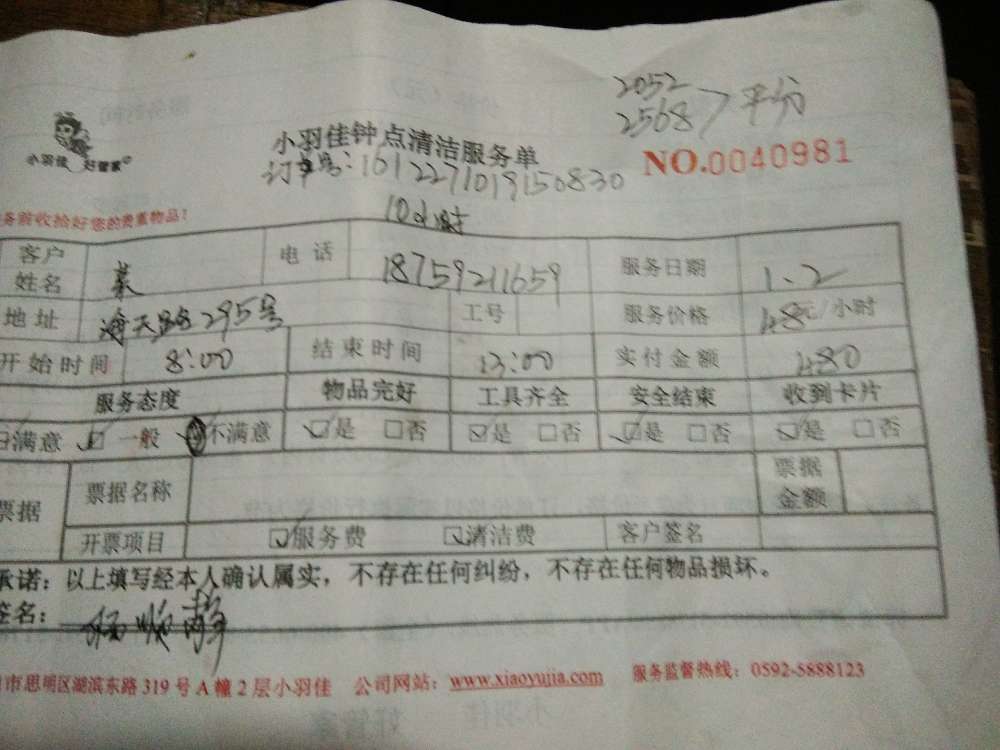 2052
2568 > 平分
小羽佳 好管家
小羽佳钟点清洁服务单
NO.0040981
订单号:1612271019150830
务前收拾好您的贵重物品!
10小时
客户姓名 电话 18759211659 服务日期 1.2
地址 海天路295号 工号 服务价格 48元/小时
开始时间 8:00 结束时间 13:00 实付金额 480
服务态度 物品完好 工具齐全 安全结束 收到卡片
满意 一般 不满意 是 否 是 否 是 否 是 否
票据 票据名称 票据金额
开票项目 服务费 清洁费 客户签名
承诺:以上填写经本人确认属实,不存在任何纠纷,不存在任何物品损坏。
签名:
市思明区湖滨东路319号A幢2层小羽佳 公司网站:www.xiaoyujia.com 服务监督热线:0592-5888123